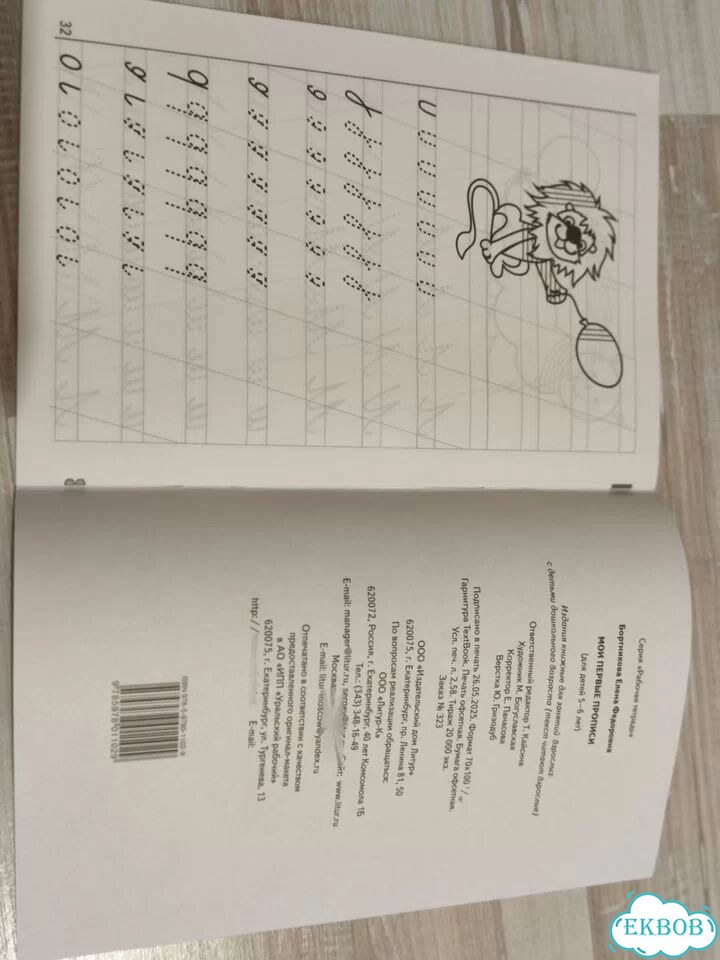 32
Серия «Рабочая тетрадь»
Бортникова Елена Федоровна
МОИ ПЕРВЫЕ ПРОПИСИ
(для детей 5–6 лет)
Издания книжные для занятий взрослых
с детьми дошкольного возраста (текст читают взрослые)
Ответственный редактор Т. Кайсина
Художник М. Богуславская
Корректор Е. Папасова
Верстка Ю. Гризодуб
Подписано в печать 26.05.2025. Формат 70x100 1/
Гарнитура TextBook. Печать офсетная. Бумага офсетная.
Усл. печ. л. 2,58. Тираж 20 000 экз.
Заказ № 322
ООО «Издательский дом Литур»
620075, г. Екатеринбург, пр. Ленина 81, 50
По вопросам реализации обращаться:
ООО «Литур-К»
620072, Россия, г. Екатеринбург, 40 лет Комсомола 1Б
Тел.: (343) 348-16-49
E-mail: manager@litur.ru, www.litur.ru
Москва:
E-mail: litur-moscow@yandex.ru
Отпечатано в соответствии с качеством
предоставленного оригинал-макета
в АО «ИПП «Уральский рабочий»
620075, г. Екатеринбург, ул. Тургенева, 13
http:// E-mail:
ISBN 978-5-9780-1102-9
9785978011029
ЕКВОВ